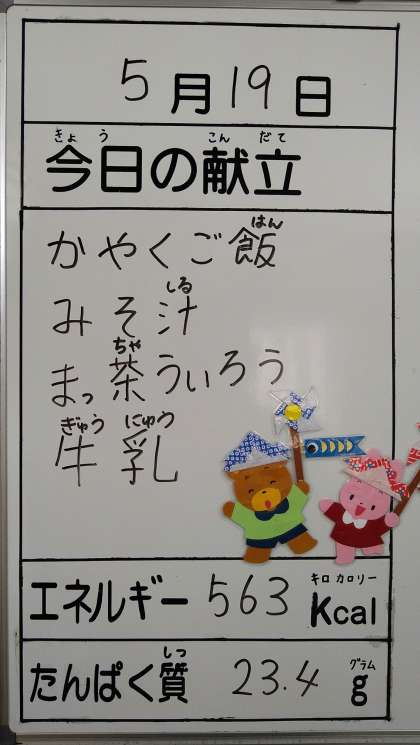 5月19日
きょう こんだて
今日の献立
はん
かやくご飯
しる
みそ汁
ちゃ
まっ茶ういろう
ぎゅう にゅう
牛乳
キロ カロリー
エネルギー 563 Kcal
しつ グラム
たんぱく質 23.4 g